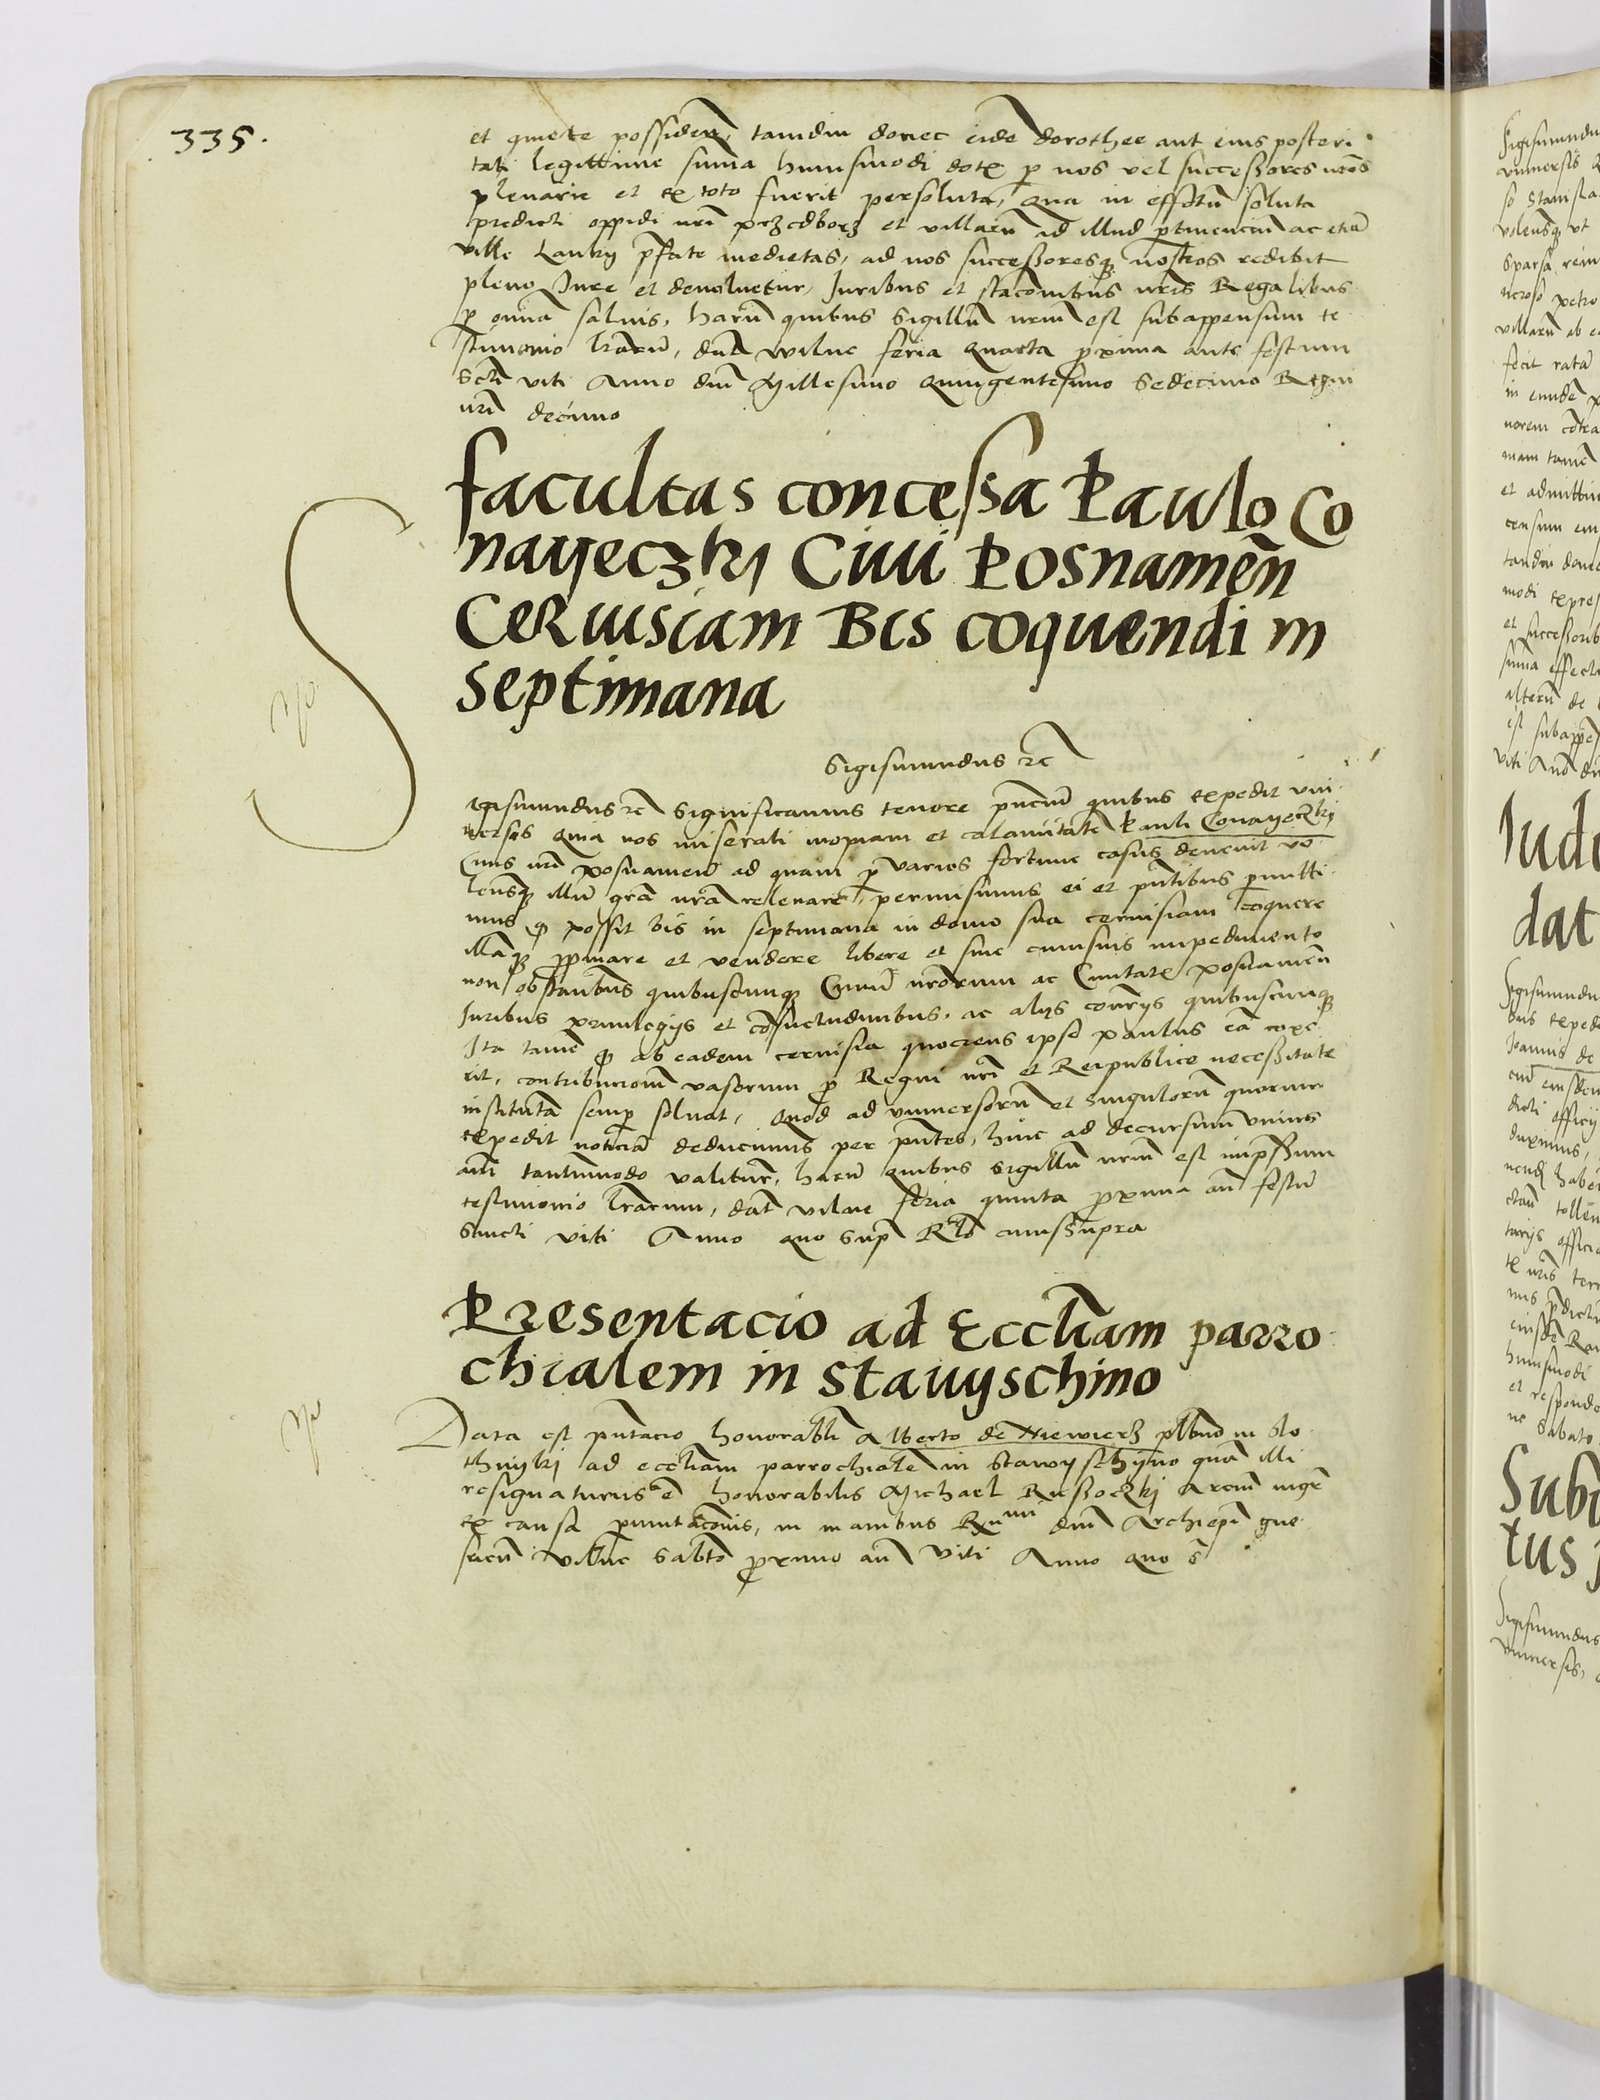 335.
et quiete possideñ, tamdiu donec eidē dorothee aut eius posteri
tati legittime suma huiusmodi dotꝭ ꝑ nos vel successores nr̄os
plenarie et ex toto fuerit persoluta, Qua in effctū soluta
predicti oppidi nr̄i przedborz et villarū ad illud ꝑtinenciū ac etiā
ville Lanky p̄fate medietas, ad nos successoresqꝫ nostros redibit
pleno Jure et devoluetur, Juribus et stacionibus nr̄is Regalibus
ꝑ oṁnia salvis, harū quibus Sigillū nr̄um est subappensum te
stimonio lrārum, datū wilne feria Quarta ꝓxima ante festum
Scti viti Anno dnī Millesimo Quingentesimo Sedecimo Regni
nr̄i decimo
facultas concessa Paulo Co
nayeczkj Civi Posnameñ
Ceruisiam Bis coquendi in
septimana
Sigismundus rc̄
igismundus rc̄ Significamus tenore pn̄cium quibus expedit vni
versis Quia nos miserati inopiam et calamitatē Pauli Conayeczkj
Civis nr̄i posnameñ ad quam ꝑ varios fortune casus devenit vo
lensqꝫ illū grā nr̄a relevare, permisimus ei et pn̄tibus ꝑmitti
mus ꝙ possit bis in septimana in domo sua cervisiam coquere
illāqꝫ ꝓpinare et vendere libere et sine cuiusvis impedimento
non obstantibus quibuscunqꝫ Civiū nr̄orum ac Civitatꝭ posnameñ
Juribus privilegijs et cōsuetudinibus, ac alijs contr̄ijs quibuscunqꝫ
Ita tamē ꝙ ab eadem cervisia quociens ipse paulus eā coxe
rit, contribucionem vasorum ꝓ Regni nr̄i et Reipublice necessitate
institutā semꝑ solvat, Quod ad vniversorū et singulorū quorum
expedit noticiā deducimus per pn̄tes, hinc ad decursum vnius
anī tantūmodo valiturꝭ, harū quibus Sigillū nr̄um est impssum
testimonio lrārum, datū vilne feria quinta ꝓxima an̄ festū
Sancti viti Anno quo Supꝛ Rlō cuius supra
Presentacio ad Eccliam parro
chialem in Stavyschino
Data est pn̄tacio honorabli Alberto de Niewierz plbno in slo
thnykj ad eccliam parrochialē in Stawyschyno quā illi
resignaturus ē honorabilis Michael Russoczkj Arcium mgr̄
ex causa ꝑmutacōnis, in manibus Rmi dnī Archiepi gne
snen̄ vilne Sabto ꝓximo an̄ Viti Anno quo s̄